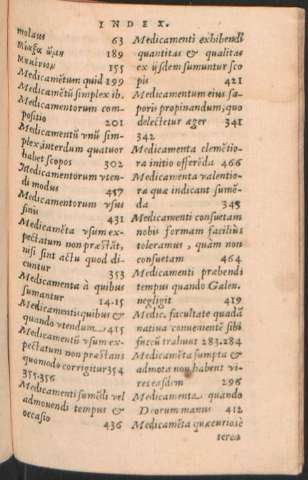 INDEX.
molaus 63
Μίαξα ὕλη 189
μικίνιομ 155
Medicamētum quid 199
Medicamētū simplex ib.
Medicamentorum compositio 201
Medicamentū vnū simplex interdum quatuor habet scopos 302
Medicamentorum vtendi modus 457
Medicamentorum vsus finis 431
Medicamēta vsum expectatum non præstāt, nisi sint actu quod dicuntur 353
Medicamenta à quibus sumantur 14.15
Medicamentis quibus & quando vtendum 415
Medicamentū vsum expectatum non præstans quomodo corrigitur 354
355.356
Medicamenti sumēdi vel admouendi tempus & occasio 436
Medicamenti exhibendi
quantitas & qualitas
ex ijsdem sumuntur scopis 421
Medicamentum eius saporis propinandum, quo
delectetur æger 341
342
Medicamenta clemētiora initio offerēda 466
Medicamenta valentiora quæ indicant sumēda 345
Medicamenti consuetam
nobis formam facilius
toleramus, quàm non
consuetam 464
Medicamenti præbendi
tempus quando Galen.
negligit 419
Medic. facultate quadā
natiua conuenientē sibi
succū trahunt 283.284
Medicamēta sumpta &
admota non habent vires easdem 296
Medicamenta quando
Deorum manus 412
Medicamēta quæ curiosè
tereo